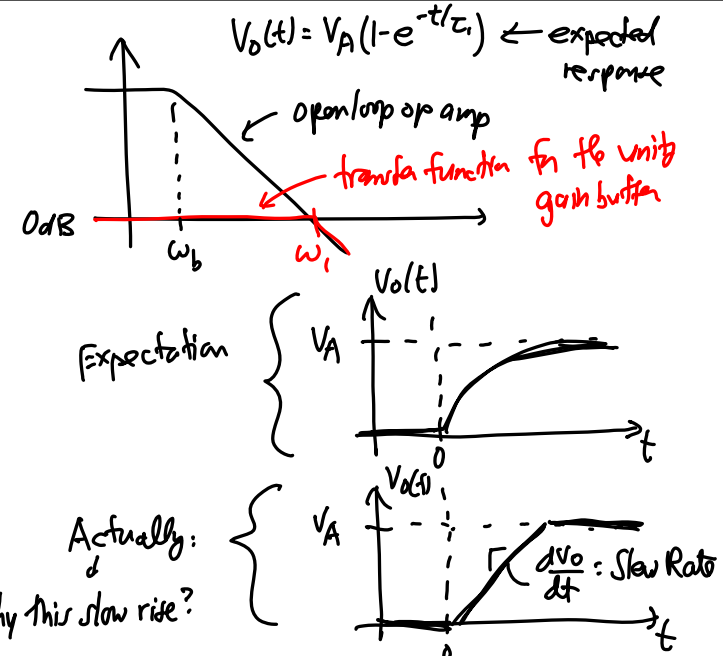 Vo(t) = VA(1-e^-t/τ1) ← expected
response
open loop op amp
transfer function for the unity
gain buffer
0dB
ωb
ω1
Vo(t)
Expectation
VA
0
t
Vo(t)
Actually:
VA
dVo/dt = Slew Rate
hy this slow rise?
t
0